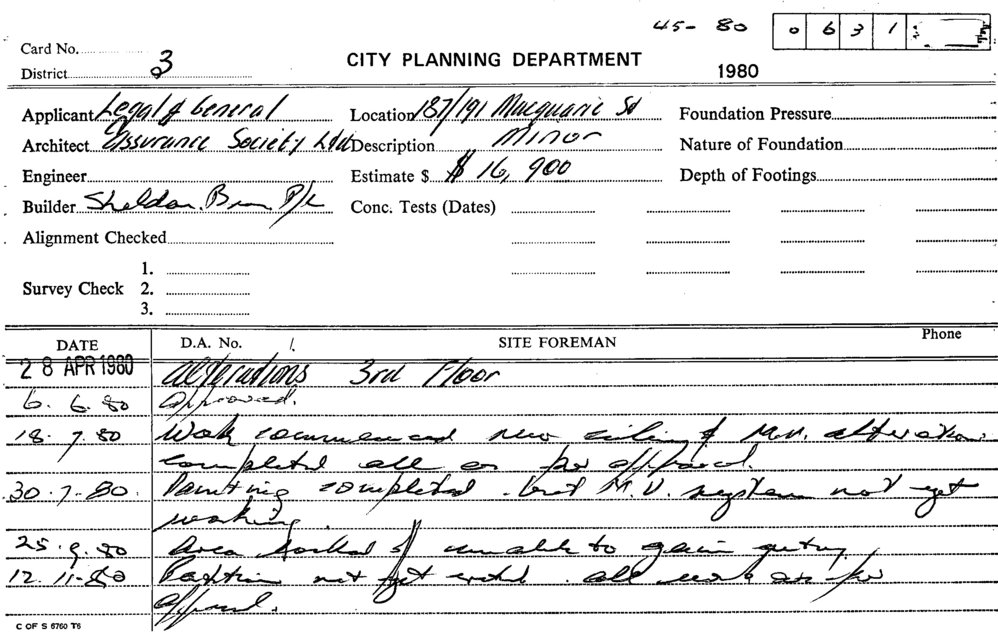 45- 80 0631
Card No.
District 3
CITY PLANNING DEPARTMENT
1980
Applicant Legal & General Location 187/191 Macquarie St Foundation Pressure
Architect Assurance Society Ltd Description Minor Nature of Foundation
Engineer Estimate $ $ 16,900 Depth of Footings
Builder Sheldon P/L Conc. Tests (Dates)
Alignment Checked
1.
Survey Check 2.
3.
DATE D.A. No. SITE FOREMAN Phone
28 APR 1980 Alterations 3rd Floor
6. 6. 80 Approved.
18. 7. 80 Work commenced new ceiling & M.V. alterations
completed all as per approval.
30. 7. 80. Painting completed but M.V. system not yet
working.
25. 9. 80 Area locked unable to gain entry
12. 11. 80 Partition not yet all work as per
approval.
C OF S 6760 T6